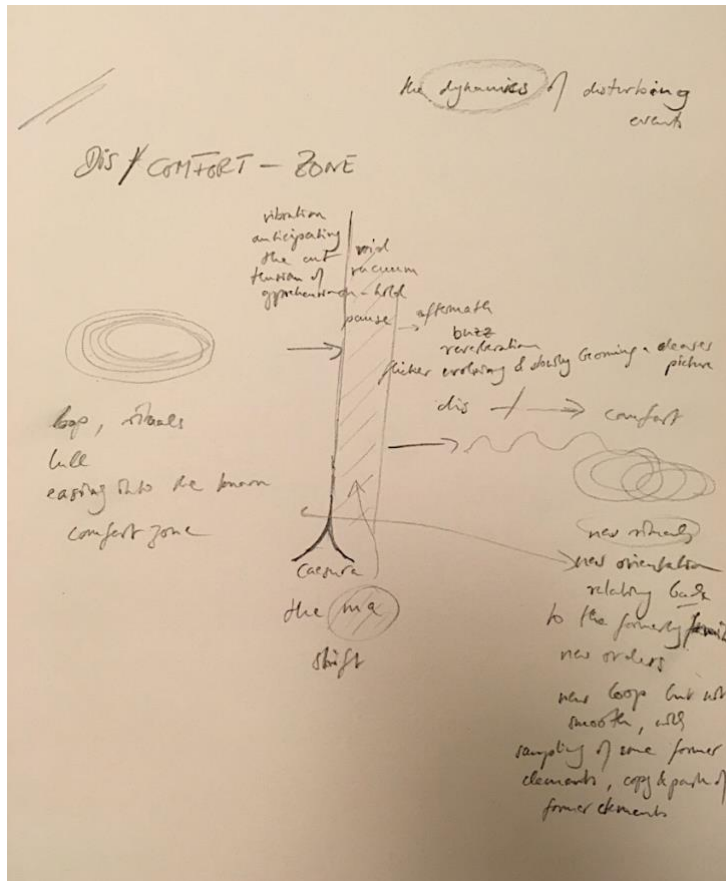 the dynamics of disturbing
events
DIS / COMFORT - ZONE
vibration
anticipating
the cut
tension of
apprehension
void
vacuum
- hold
pause
aftermath
buzz
reverberation
flicker evolving & slowly becoming a clearer
picture
dis
comfort
loop, rituals
lull
easing into the known
comfort zone
caesura
the ma
shift
new rituals
new orientation
relating back
to the formerly
new orders
new loop but not
smooth, with
sampling of some former
elements, copy & paste of
former elements